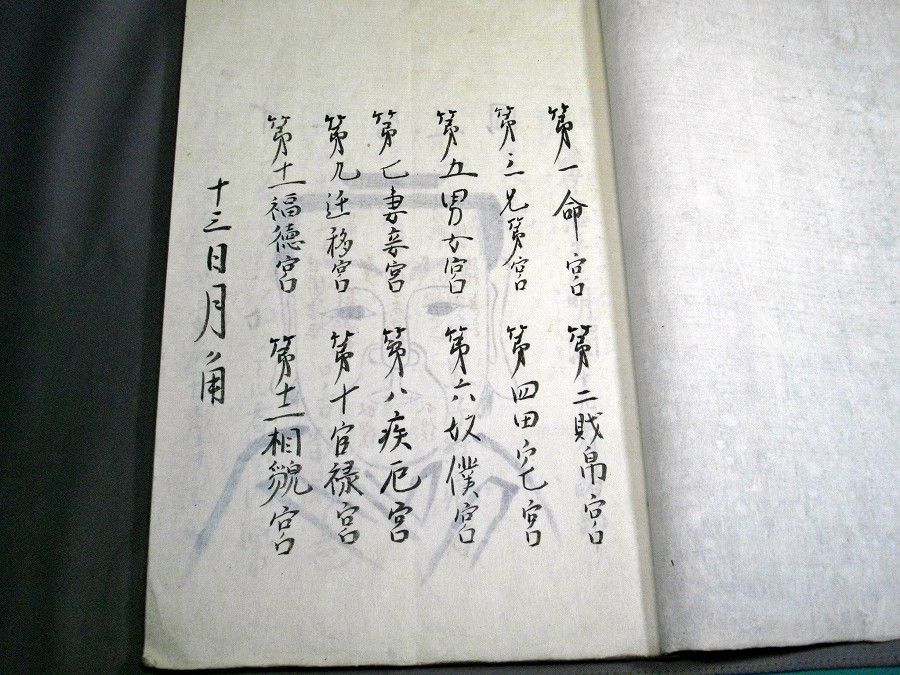 第一命宮 第二財帛宮
第三兄第宮 第四田宅宮
第五男女宮 第六奴僕宮
第七妻妾宮 第八疾厄宮
第九迁移宮 第十官禄宮
第十一福德宮 第十二相貌宮
十三日月角